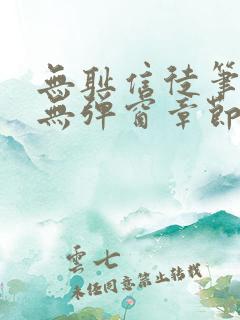 無耻信徒筆
無彈窗章節
雲七
未經同意禁止轉載